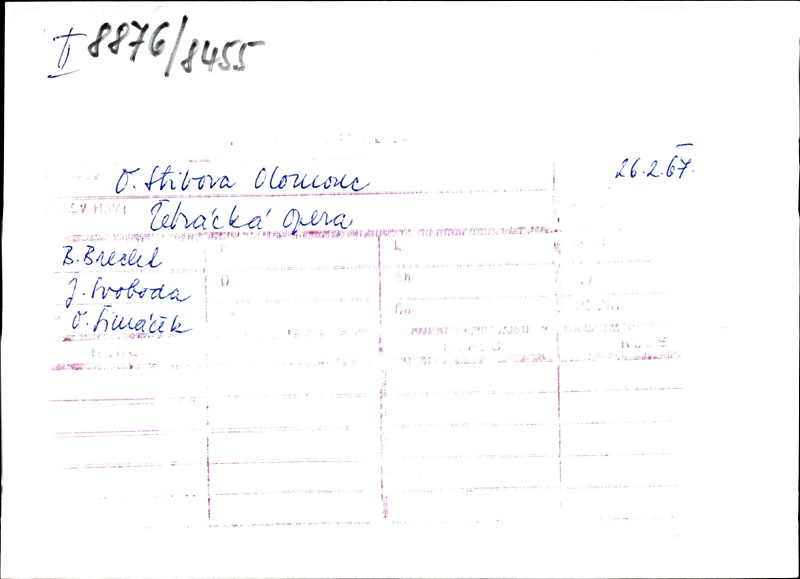 II 8876/8455
O. Stibora Olomouc 26.2.67.
Žebrácká opera
B. Brecht
J. Svoboda
O. Šimáček